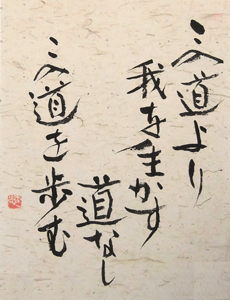 この道より
我を生かす
道なし
この道を歩む